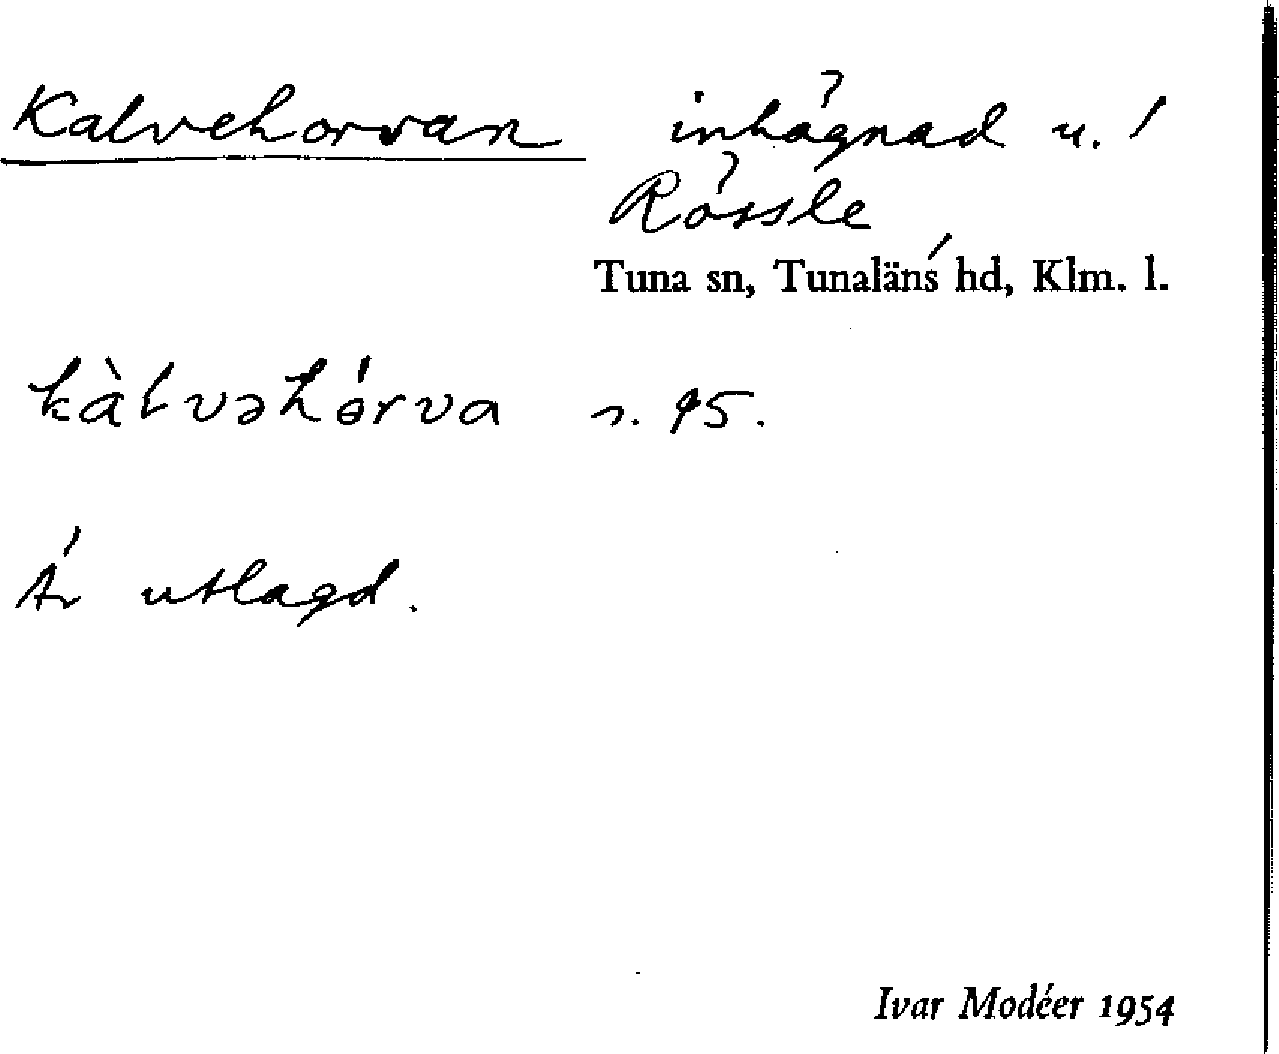 Kalvehorvan inhägnad u. /
Rössle
Tuna sn, Tunaläns hd, Klm. l.
kàlvəhór̀va s. 95.
Är utlagd.
Ivar Modéer 1954